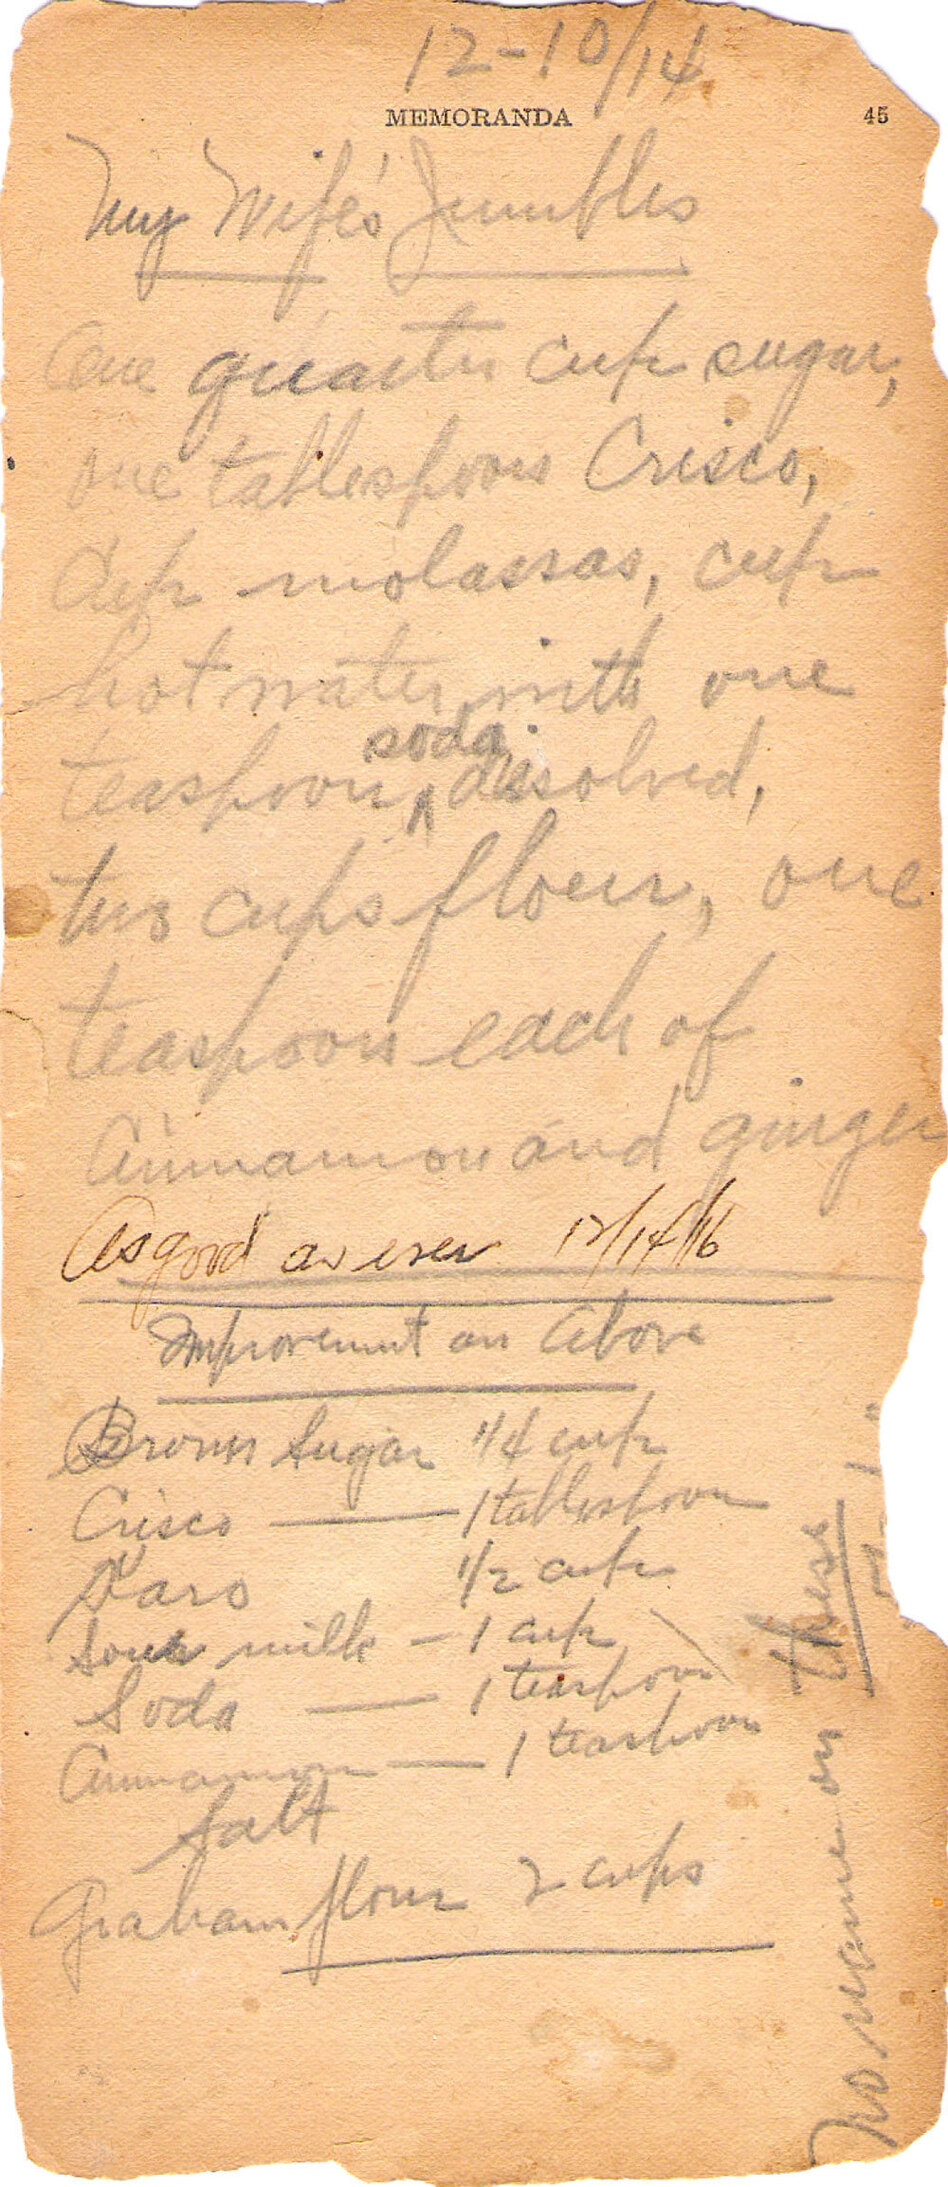 12-10/14
MEMORANDA 45
My Wife's Jumbles
One quarter cup sugar,
one tablespoon Crisco,
Cup molassas, cup
hot water with one
soda
teaspoon ^ dissolved,
two cups flour, one
teaspoon each of
Cinnamon and ginger
As good as ever 12/14/16
Improvement on Above
Brown Sugar 1/4 cup
Crisco — 1 tablespoon
Karo 1/2 cup
Sour milk – 1 cup
Soda — 1 teaspoon
Cinnamon — 1 teaspoon
Salt
Graham flour 2 cups
No name on these